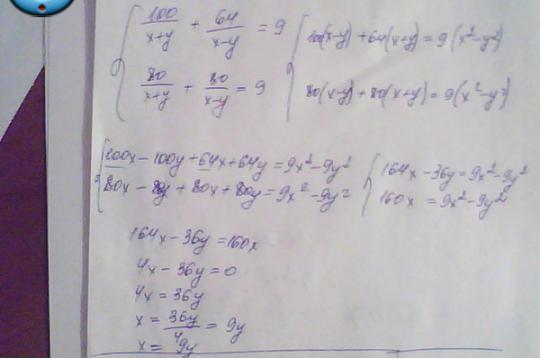 100/(x+y) + 64/(x-y) = 9
80/(x+y) + 80/(x-y) = 9
100(x-y) + 64(x+y) = 9(x²-y²)
80(x-y) + 80(x+y) = 9(x²-y²)
100x - 100y + 64x + 64y = 9x² - 9y²
80x - 80y + 80x + 80y = 9x² - 9y²
164x - 36y = 9x² - 9y²
160x = 9x² - 9y²
164x - 36y = 160x
4x - 36y = 0
4x = 36y
x = 36y/4 = 9y
x = 9y